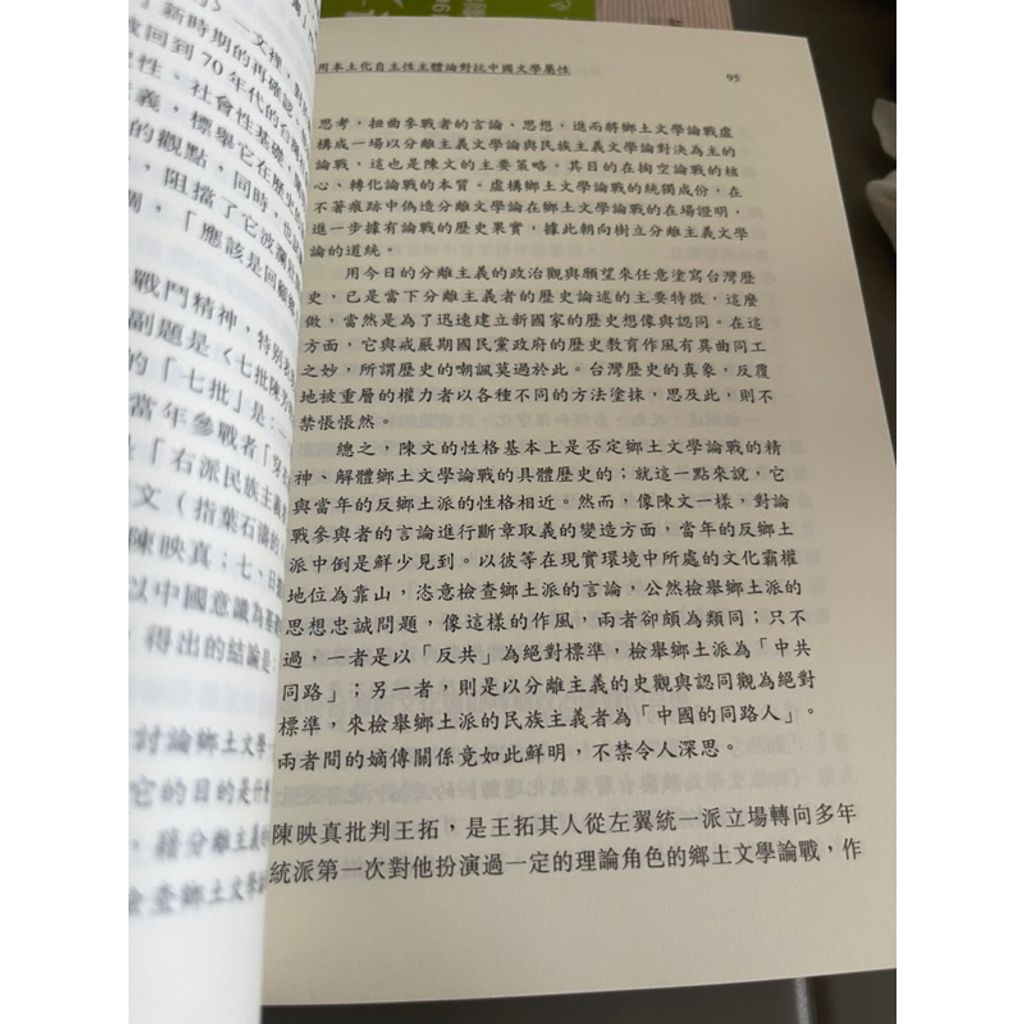 用本土化自主性主體論對抗中國文學屬性
95
思考，扭曲參戰者的言論、思想，進而將鄉土文學論戰虛
構成一場以分離主義文學論與民族主義文學論對決為主的
論戰，這也是陳文的主要策略。其目的在掏空論戰的核
心、轉化論戰的本質。虛構鄉土文學論戰的統獨成份，在
不著痕跡中偽造分離文學論在鄉土文學論戰的在場證明，
進一步據有論戰的歷史果實，據此朝向樹立分離主義文學
論的道統。
用今日的分離主義的政治觀與願望來任意塗寫台灣歷
史，已是當下分離主義者的歷史論述的主要特徵，這麼
做，當然是為了迅速建立新國家的歷史想像與認同。在這
方面，它與戒嚴期國民黨政府的歷史教育作風有異曲同工
之妙，所謂歷史的嘲諷莫過於此。台灣歷史的真象，反覆
地被重層的權力者以各種不同的方法塗抹，思及此，則不
禁悵悵然。
總之，陳文的性格基本上是否定鄉土文學論戰的精
神、解體鄉土文學論戰的具體歷史的；就這一點來說，它
與當年的反鄉土派的性格相近。然而，像陳文一樣，對論
戰參與者的言論進行斷章取義的變造方面，當年的反鄉土
派中倒是鮮少見到。以彼等在現實環境中所處的文化霸權
地位為靠山，恣意檢查鄉土派的言論，公然檢舉鄉土派的
思想忠誠問題，像這樣的作風，兩者卻頗為類同；只不
過，一者是以「反共」為絕對標準，檢舉鄉土派為「中共
同路」；另一者，則是以分離主義的史觀與認同觀為絕對
標準，來檢舉鄉土派的民族主義者為「中國的同路人」。
兩者間的嫡傳關係竟如此鮮明，不禁令人深思。
陳映真批判王拓，是王拓其人從左翼統一派立場轉向多年
統派第一次對他扮演過一定的理論角色的鄉土文學論戰，作
一文裡，對
新時期的再確認。
回到70年代的台灣
性、社會性基礎，
義，標舉它在歷史的
的觀點，同時，也
，阻擋了它波瀾
，「應該是回顧
戰鬥精神，特別
副題是〈七批陳芳
的「七批」是：一
當年參戰者「
「右派民族主義
文（指葉石濤的
陳映真；七、日
以中國意識為基
得出的結論是：
討論鄉土文學
它的目的是什
，藉分離主義
檢查鄉土文學